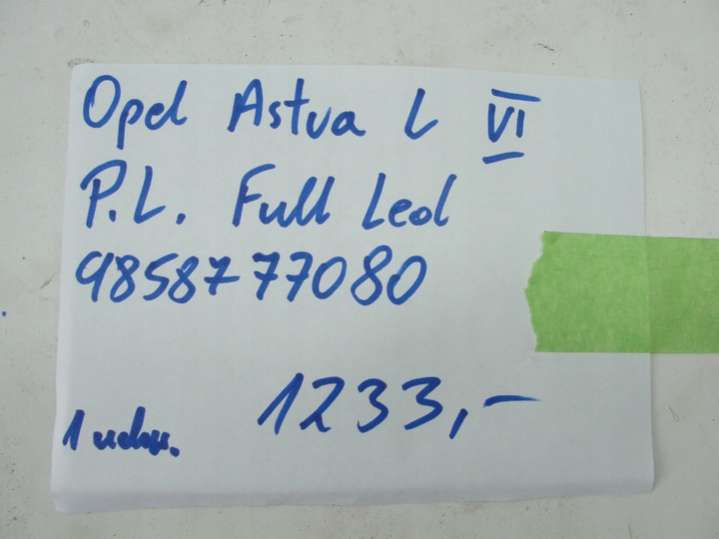 Opel Astra L VI
P.L. Full Led
9858777080
1233,-